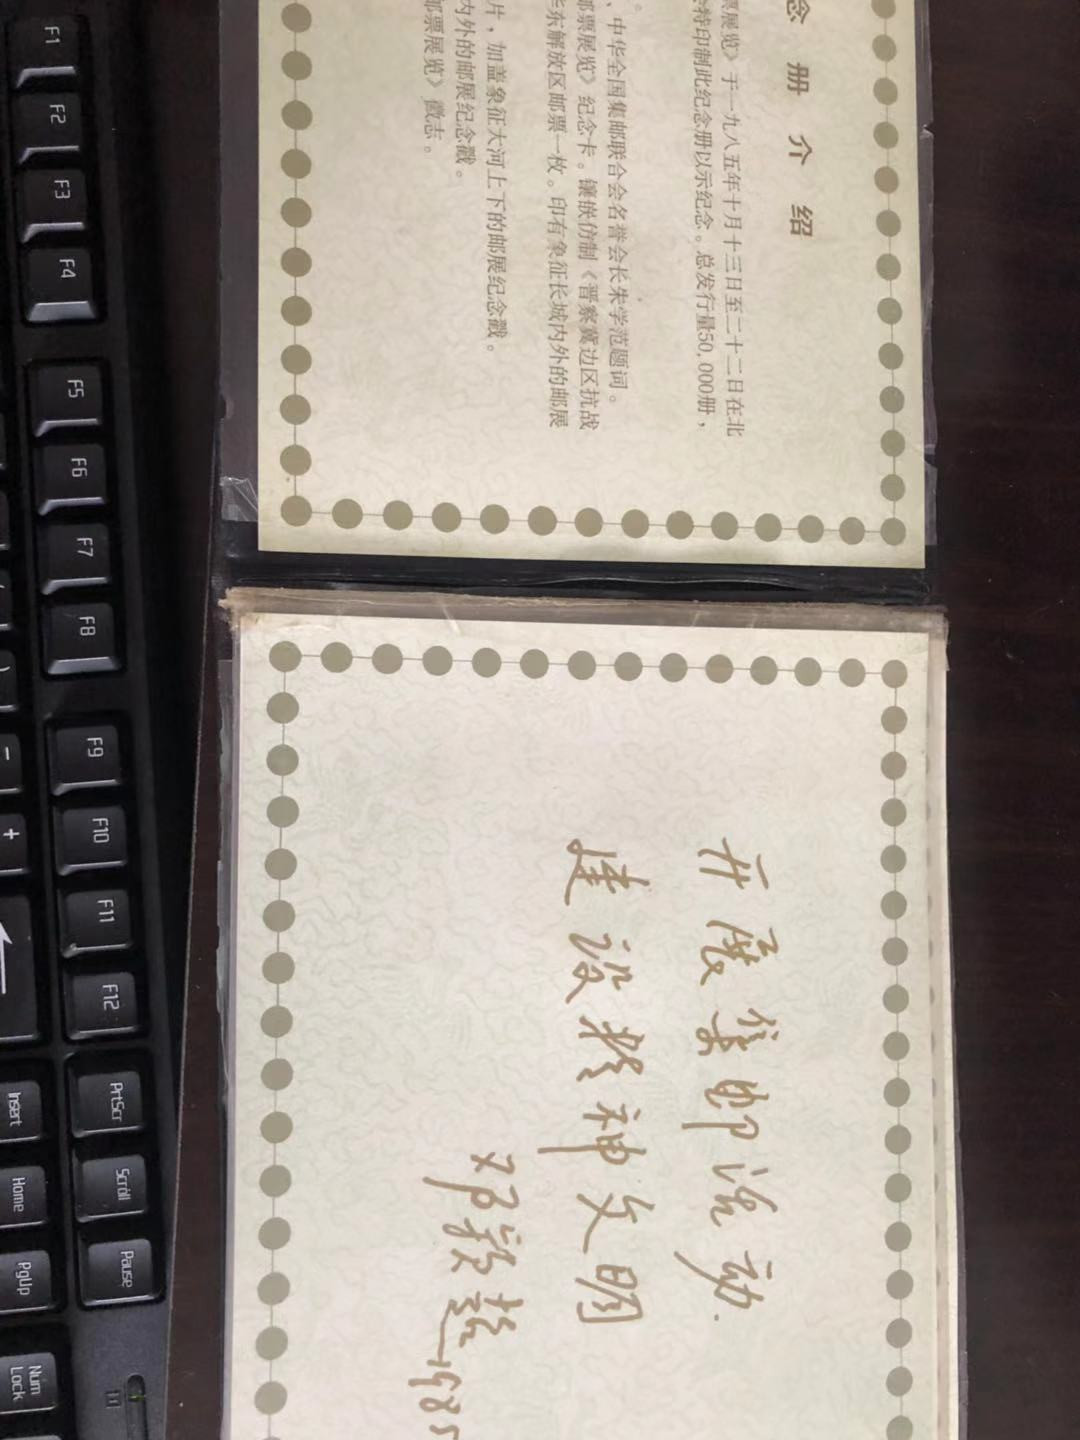 念册介绍
票展览》于一九八五年十月十三日至二十二日在北
特印制此纪念册以示纪念。总发行量50,000册，
。
、中华全国集邮联合会名誉会长朱学范题词。
邮票展览》纪念卡。镶嵌仿制《晋察冀边区抗战
华东解放区邮票一枚。印有象征长城内外的邮展
片，加盖象征大河上下的邮展纪念戳。
内外的邮展纪念戳。
邮票展览》徽志。
开展集邮活动.
建设精神文明
邓颖超
1985
F1
F2
F3
F4
F5
F6
F7
F8
F9
F10
F11
F12
PrtScr
Scroll
Pause
Insert
Home
PgUp
Num
Lock
-
+